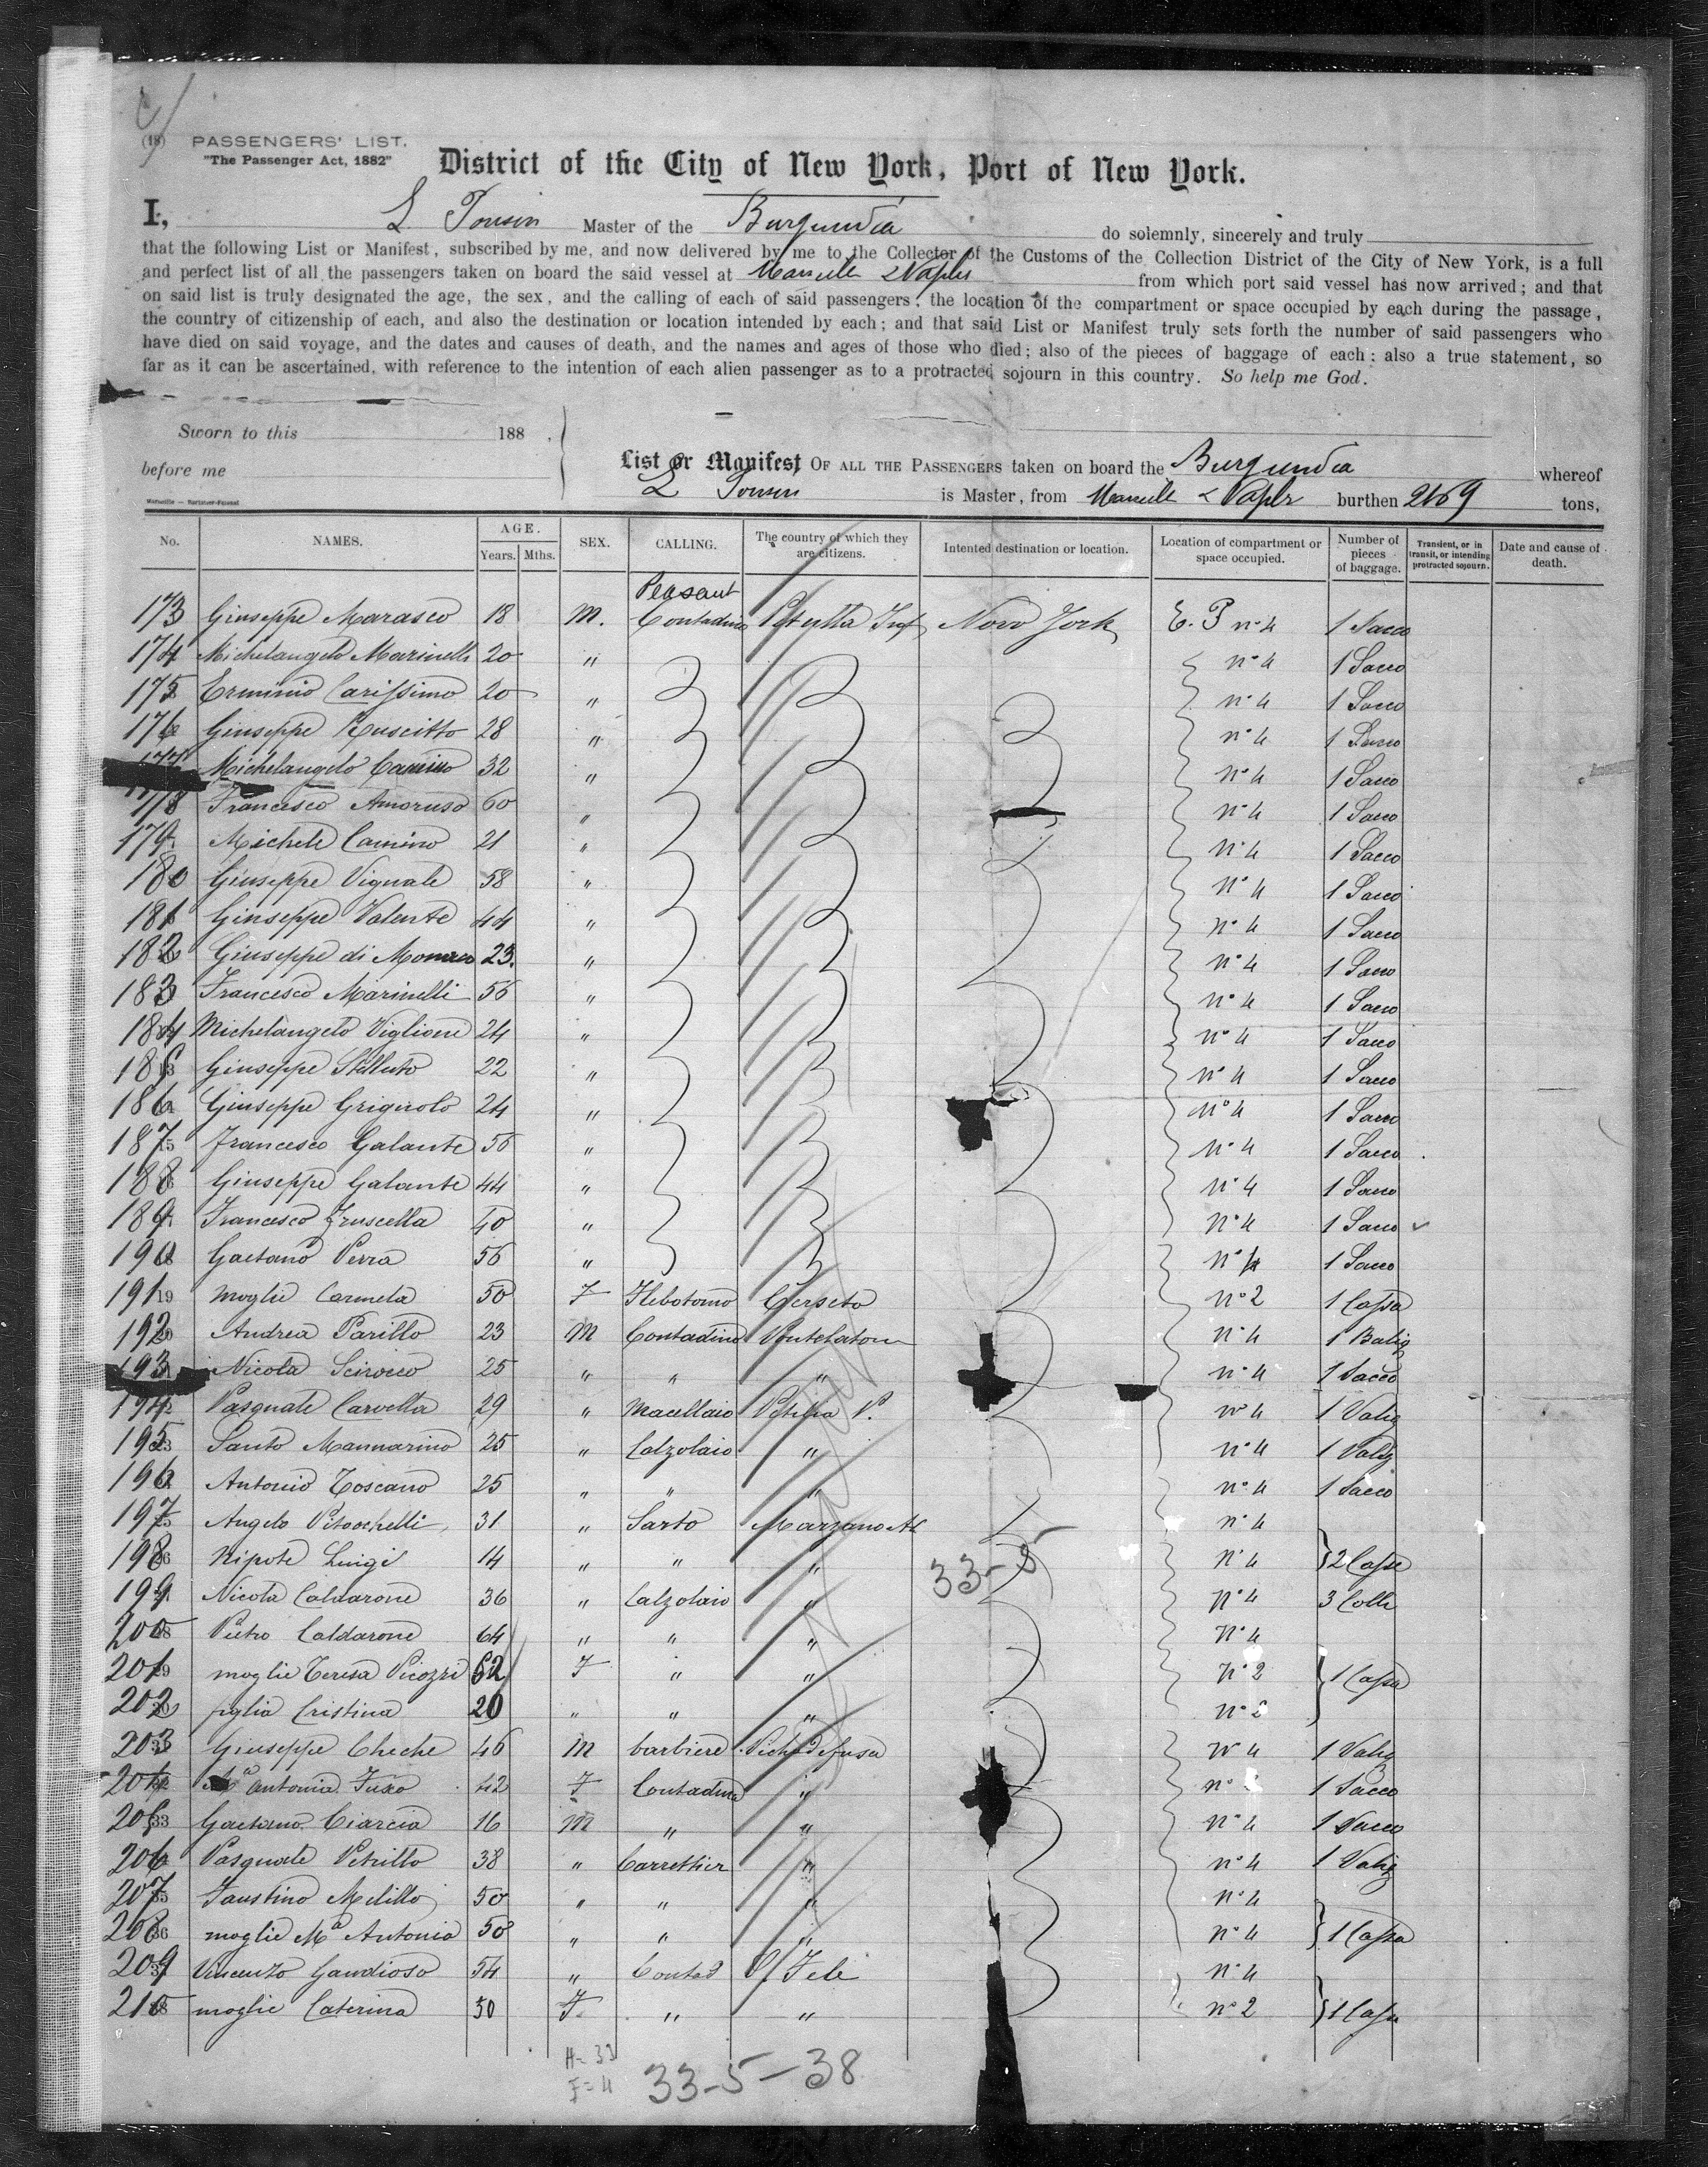 (18) PASSENGERS' LIST.
"The Passenger Act, 1882"
District of the City of New York, Port of New York.
I, L. Tousin Master of the Burgundia do solemnly, sincerely and truly
that the following List or Manifest, subscribed by me, and now delivered by me to the Collector of the Customs of the Collection District of the City of New York, is a full
and perfect list of all the passengers taken on board the said vessel at Marseille & Naples from which port said vessel has now arrived; and that
on said list is truly designated the age, the sex, and the calling of each of said passengers, the location of the compartment or space occupied by each during the passage,
the country of citizenship of each, and also the destination or location intended by each; and that said List or Manifest truly sets forth the number of said passengers who
have died on said voyage, and the dates and causes of death, and the names and ages of those who died; also of the pieces of baggage of each; also a true statement, so
far as it can be ascertained, with reference to the intention of each alien passenger as to a protracted sojourn in this country. So help me God.
Sworn to this 188 .
before me
List or Manifest OF ALL THE PASSENGERS taken on board the Burgundia whereof
L Tousin is Master, from Marseille & Naples burthen 2169 tons,
No. NAMES. AGE. Years. Mths. SEX. CALLING. The country of which they are citizens. Intented destination or location. Location of compartment or space occupied. Number of pieces of baggage. Transient, or in transit, or intending protracted sojourn. Date and cause of death.
Peasant
173 Giuseppe Marasco 18 M. Contadino Novo York E. P n°4 1 Sacco
174 Michelangelo Marinelli 20 " n°4 1 Sacco
175 Erminio Carissimo 20 " n°4 1 Sacco
176 Giuseppe Ruscitto 28 " n°4 1 Sacco
177 Michelangelo Camino 32 " n°4 1 Sacco
178 Francesco Amoruso 60 " n°4 1 Sacco
179 Michele Camino 21 " n°4 1 Sacco
180 Giuseppe Vignale 58 " n°4 1 Sacco
181 Giuseppe Valente 44 " n°4 1 Sacco
182 Giuseppe di Monaco 23. " n°4 1 Sacco
183 Francesco Marinelli 56 " n°4 1 Sacco
184 Michelangelo Viglione 24 " n°4 1 Sacco
185 Giuseppe Stelluto 22 " n°4 1 Sacco
186 Giuseppe Grignolo 24 " n°4 1 Sacco
187 Francesco Galante 56 " n°4 1 Sacco
188 Giuseppe Galante 44 " n°4 1 Sacco
189 Francesco Fruscella 40 " n°4 1 Sacco
190 Gaetano Perra 56 " n°4 1 Sacco
191 moglie Carmela 50 F Flebotomo Cerseto n°2 1 Cassa
192 Andrea Parillo 23 M Contadino Pontelatone n°4 1 Balig
193 Nicola Scirocco 25 " " " n°4 1 Sacco
194 Pasquale Carvelta 29 " Macellaio Petilia P. n°4 1 Valig
195 Santo Mannarino 25 " Calzolaio " n°4 1 Valig
196 Antonio Toscano 25 " " " n°4 1 Sacco
197 Angelo Pitocchelli 31 " Sarto Marzano n°4
198 Nipote Luigi 14 " " " 33-5 n°4 2 Casse
199 Nicola Caldarone 36 " Calzolaio " n°4 3 Colli
200 Pietro Caldarone 64 " " " n°4
201 moglie Teresa Picozzi 62 F " " n°2 1 Cassa
202 figlia Cristina 20 " " " n°2
203 Giuseppe Cheche 46 M barbiere n°4 1 Valig
204 Mª antonia Fuso 42 F Contadina " n° 1 Sacco
205 Gaetano Ciarcia 16 M " " n°4 1 Sacco
206 Pasquale Petrillo 38 " Carrettier " n°4 1 Valig
207 Faustino Melillo 50 " " " n°4
208 moglie Mª Antonia 50 " " " n°4 1 Cassa
209 Vincenzo Gaudioso 54 " Contad S/ Fele n°4
210 moglie Caterina 50 F. " " n°2 1 Cassa
H=33
F=4
33-5-38